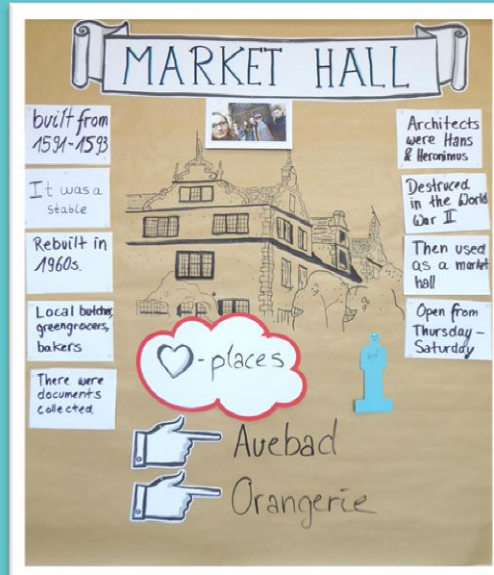 MARKET HALL
built from
1591-1593
It was a
stable
Rebuilt in
1960s.
Local butcher,
greengrocers,
bakers
There were
documents
collected
Architects
were Hans
& Heronimus
Destruced
in the World
War II
Then used
as a market
hall
Open from
Thursday -
Saturday
-places
Auebad
Orangerie